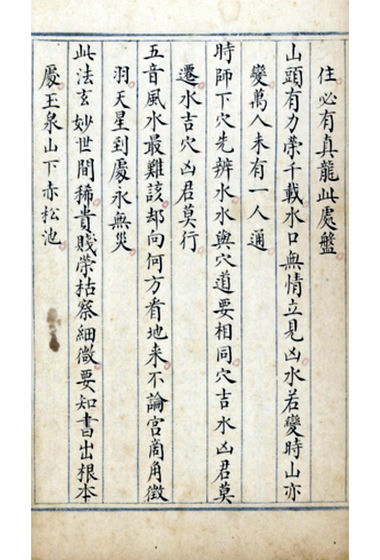 住必有真龍此處盤
山頭有力榮千載水口無情立見凶水若變時山亦
變萬人未有一人通
時師下穴先辨水水與穴道要相同穴吉水凶君莫
遷水吉穴凶君莫行
五音風水最難該却向何方看地來不論宮商角徵
羽天星到處永無災
此法玄妙世間稀貴賤榮枯察細微要知書出根本
處玉泉山下赤松池